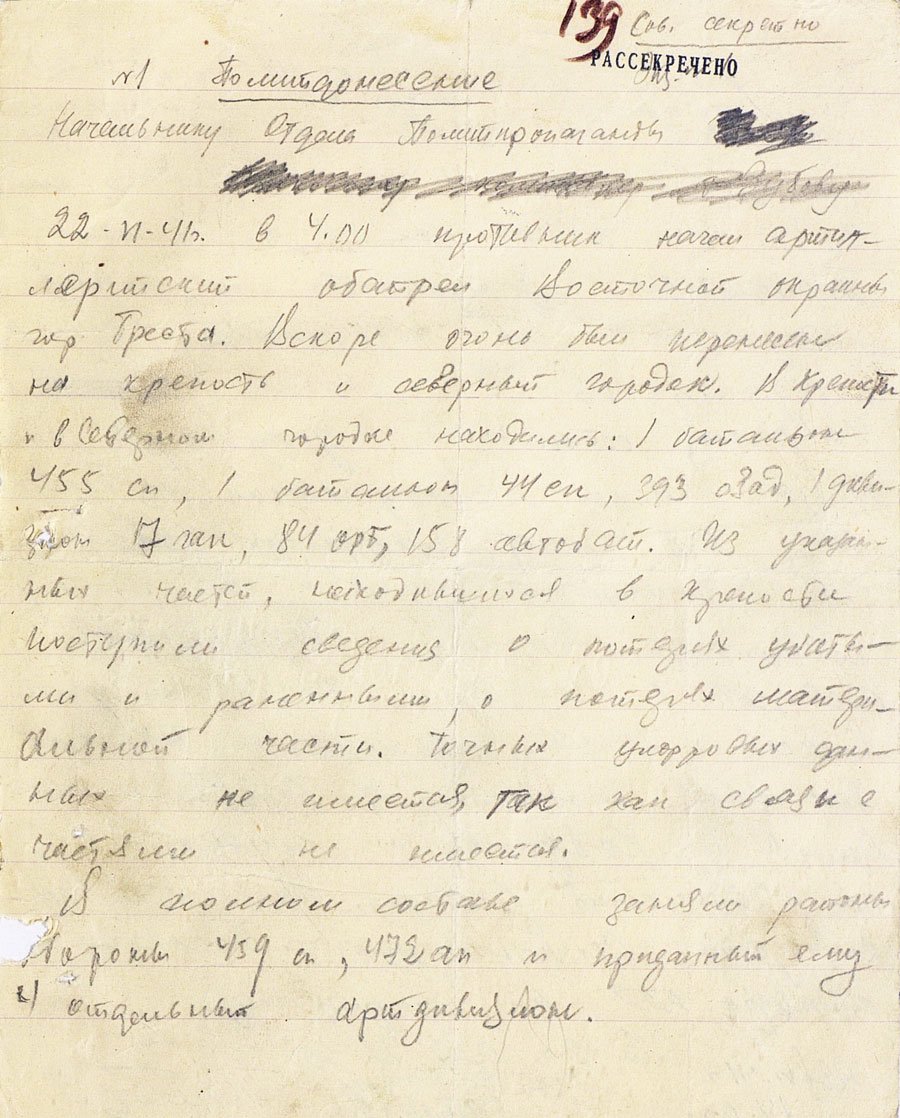 139 Сов. секретно
РАССЕКРЕЧЕНО
Экз.
№1 Политдонесение
Начальнику Отдела Политпропаганды
22-VI-41г. в 4.00 противник начал артил-
лерийский обстрел Восточной окраины
гор Бреста. Вскоре огонь был перенесен
на крепость и северный городок. В крепости
и в Северном городке находились: 1 батальон
455 сп, 1 батальон 44 сп, 393 озад, 1 диви-
зион 17 гап, 84 орб, 158 автобат. Из указан-
ных частей, находившихся в крепости
поступили сведения о потерях убиты-
ми и раненными, о потерях матери-
альной части. Точных цифровых дан-
ных не имеется, так как связи с
частями не имеется.
В полном составе заняли районы
обороны 459 сп, 472 ап и приданный ему
отдельный артдивизион.